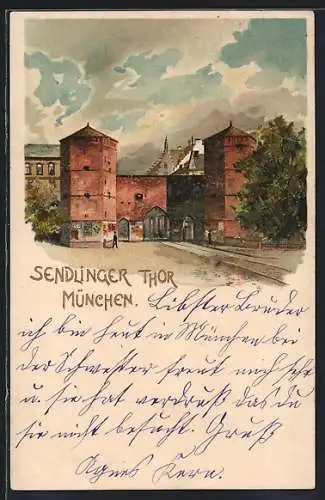 SENDLINGER THOR
MÜNCHEN.
Liebster Bruder
ich bin heut in München bei
der Schwester freut mich sehr
u. sie hat verdruß das du
sie nicht besucht. Gruß
Agnes Kern.